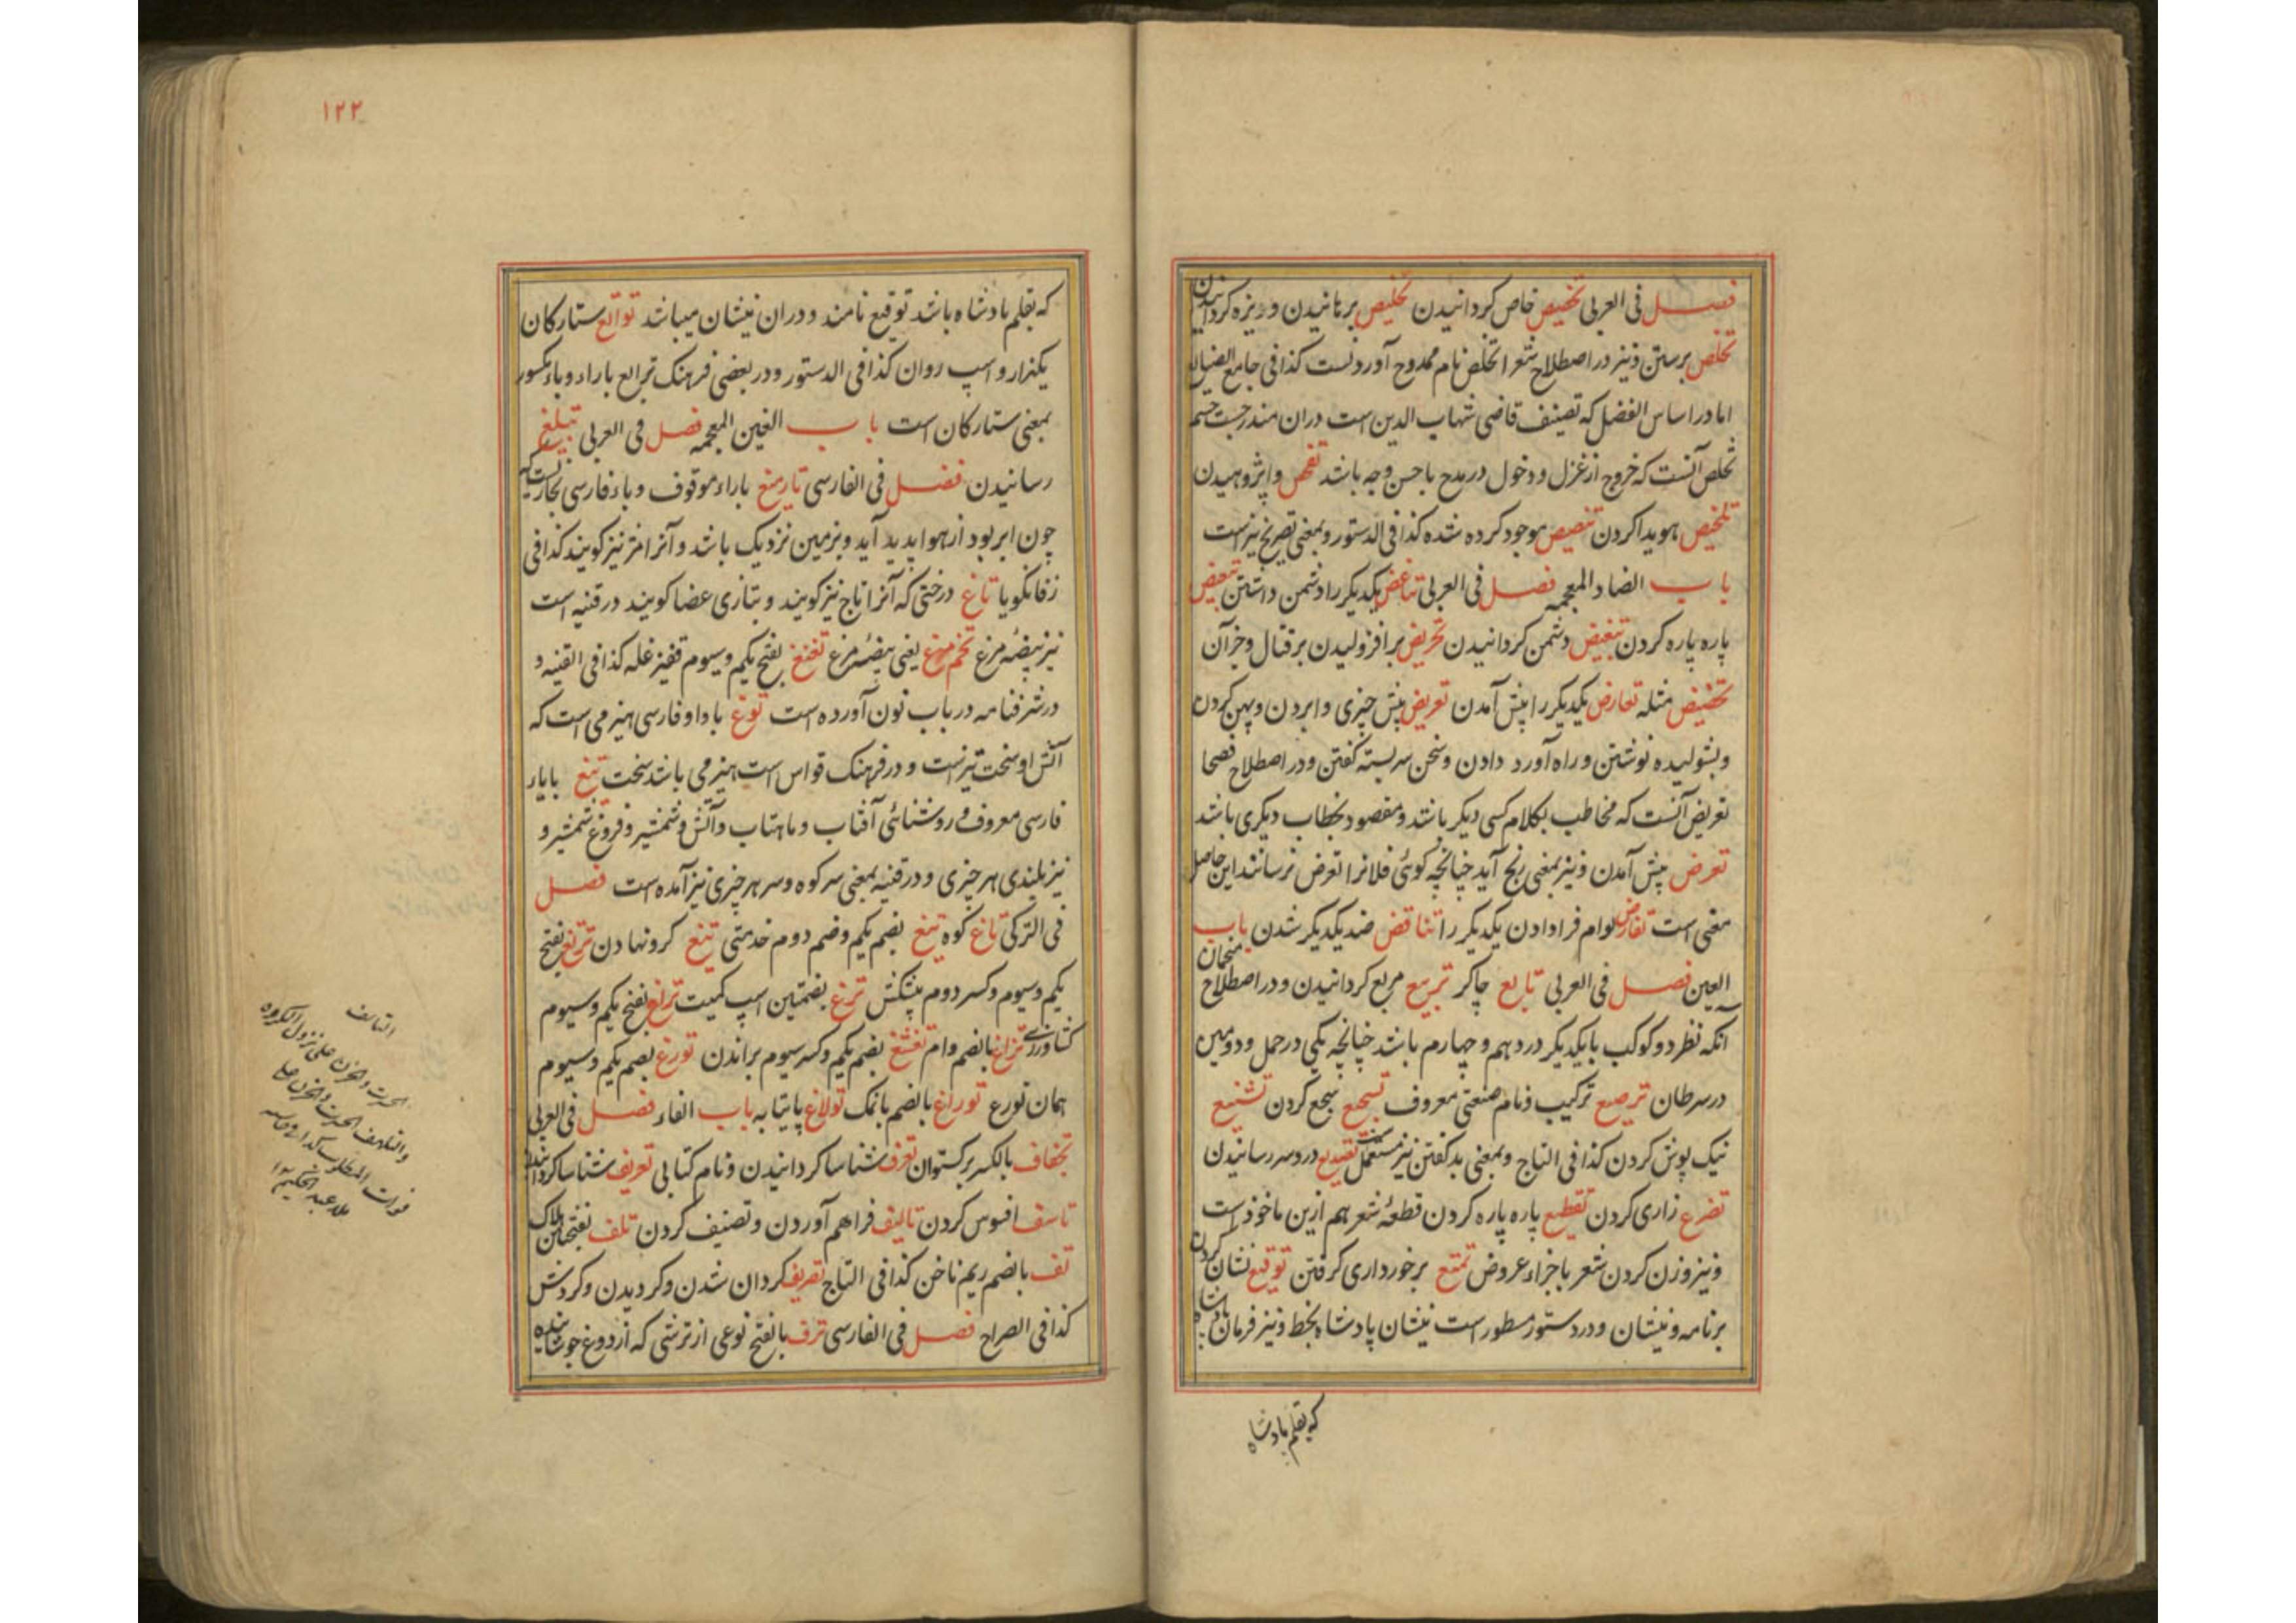 فصل فی العربی تخصیص خاص کردانیدن تخلیص برهانیدن و ویزه کردانیدن
تخلص برستن و نیز در اصطلاح شعرا تخلص نام ممدوح آوردنست کذا فی جامع الصنایع
اما در اساس الفضل که تصنیف قاضی شهاب الدین است دران مندرجست حسن
تخلص آنست که خروج از غزل و دخول در مدح باحسن وجه باشد تفحص وا پژوهیدن
تلخیص هویدا کردن تنصیص موجود کرده شده کذا فی الدستور و بمعنی تصریح نیز است
باب الضاد المعجمه فصل فی العربی تباغض یکدیکر را دشمن داشتن تبعیض
پاره پاره کردن تبغیض دشمن کردانیدن تحریض برافزولیدن بر قتال و جز آن
تحضیض مثله تعارض یکدیکر را پیش آمدن تعریض پیش چیزی وا بردن و پهن کردن
و بشولیده نوشتن و راه آورد دادن و سخن سربسته کفتن و در اصطلاح فصحا
تعریض آنست که مخاطب بکلام کسی دیکر باشد و مقصود بخطاب دیکری باشد
تعرض پیش آمدن و نیز بمعنی رنج آید چنانچه کوئی فلانرا تعرض نرسانند این حاصل
معنی است تقارض وام فرا دادن یکدیکر را تناقض ضد یکدیکر شدن باب
العین فصل فی العربی تابع چاکر تربیع مربع کردانیدن و در اصطلاح منجمان
آنکه نظر دو کوکب بایکدیکر در دهم و چهارم باشد چنانچه یکی در حمل و دومین
در سرطان ترصیع ترکیب و نام صنعتی معروف تسجیع سجع کردن تشنیع
نیک پوش کردن کذا فی التاج و بمعنی بد کفتن نیز مستعمل تصدیع درد سر رسانیدن
تضرع زاری کردن تقطیع پاره پاره کردن قطعهٔ شعر هم ازین ماخوذ است
و نیز وزن کردن شعر باجزاء عروض تمتع برخورداری کرفتن توقیع نشان کردن
برنامه و نیشان و در دستور مسطور است نیشان پادشاه بخط و نیز فرمان پادشاه
که بقلم پادشاه
۱۲۲
که بقلم پادشاه باشد توقیع نامند و دران نیشان میباشد توابع ستارکان
یکندار و اسپ روان کذا فی الدستور و در بعضی فرهنک ترابع باراء و باء مکسور
بمعنی ستارکان است باب الغین المعجمه فصل فی العربی تبلیغ
رسانیدن فصل فی الفارسی تارمیغ باراء موقوف و باء فارسی بخاریست که
چون ابر بود از هوا پدید آید و بزمین نزدیک باشد و آنرا نیز کویند کذا فی
زفانکویا تاغ درختی که آنرا تاج نیز کویند و بتازی غضا کویند در قنیه است
نیز بیضهٔ مرغ تخم مرغ یعنی بیضهٔ مرغ بفتح یکم و سیوم قفیز غله کذا فی القنیه و
در شرفنامه در باب نون آورده است توغ با واو فارسی هیزمی است که
آتش او سخت تیز است و در فرهنک قواس است هیزمی باشد سخت تیغ بایاء
فارسی معروف و روشنائی آفتاب و ماهتاب و آتش و شمشیر و فروغ شمشیر و
نیز بلندی هر چیزی و در قنیه بمعنی سر کوه و سر هر چیزی نیز آمده است فصل
فی الترکی تاغ کوه تیغ بضم یکم و ضم دوم خدمتی کرو نهادن بفتح
یکم و سیوم و کسر دوم پیشکش ترغ بضمتین اسپ کمیت بفتح یکم و سیوم
کشاورزی بالضم وام بضم یکم و کسر سیوم براندن تورغ بضم یکم و سیوم
همان تورع توراغ بالضم بانمک تولاغ پایتابه باب الفاء فصل فی العربی
تجفاف بالکسر برکستوان تعرف شناسا کردانیدن و نام کتابی تعریف شناسا کردانیدن
تاسف افسوس کردن تالیف فراهم آوردن و تصنیف کردن تلف بفتحتین هلاک
تف بالضم ریم ناخن کذا فی التاج تصریف کردان شدن و کردیدن و کردش
کذا فی الصراح فصل فی الفارسی ترف بالفتح نوعی از ترشی که از دوغ جوشانیده
التاسف
الحسرت والحزن علی نزول المکروه
والتلهف الحسرت والحزن علی
فوات المطلوب کذا
ملا عبد الحکیم